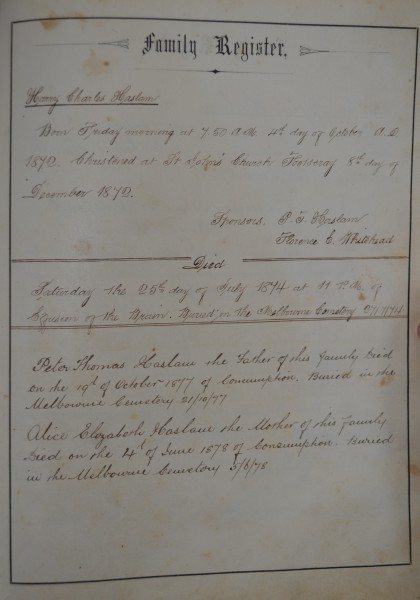 Family Register.
Harry Charles Haslam
Born Friday morning at 7.50 A.M. 4th day of October A.D.
1872. Christened at St John's Church Footscray 8th day of
December 1872.
Sponsors. P. T. Haslam
Florence E. Whitehead
Died
Saturday the 25th day of July 1874 at 11 P.M. of
Effusion of the Brain. Buried in the Melbourne Cemetery 27/7/74
Peter Thomas Haslam the Father of this family Died
on the 19th of October 1877 of Consumption. Buried in the
Melbourne Cemetery 21/10/77
Alice Elizabeth Haslam the Mother of this Family
Died on the 4th of June 1878 of Consumption. Buried
in the Melbourne Cemetery 5/6/78